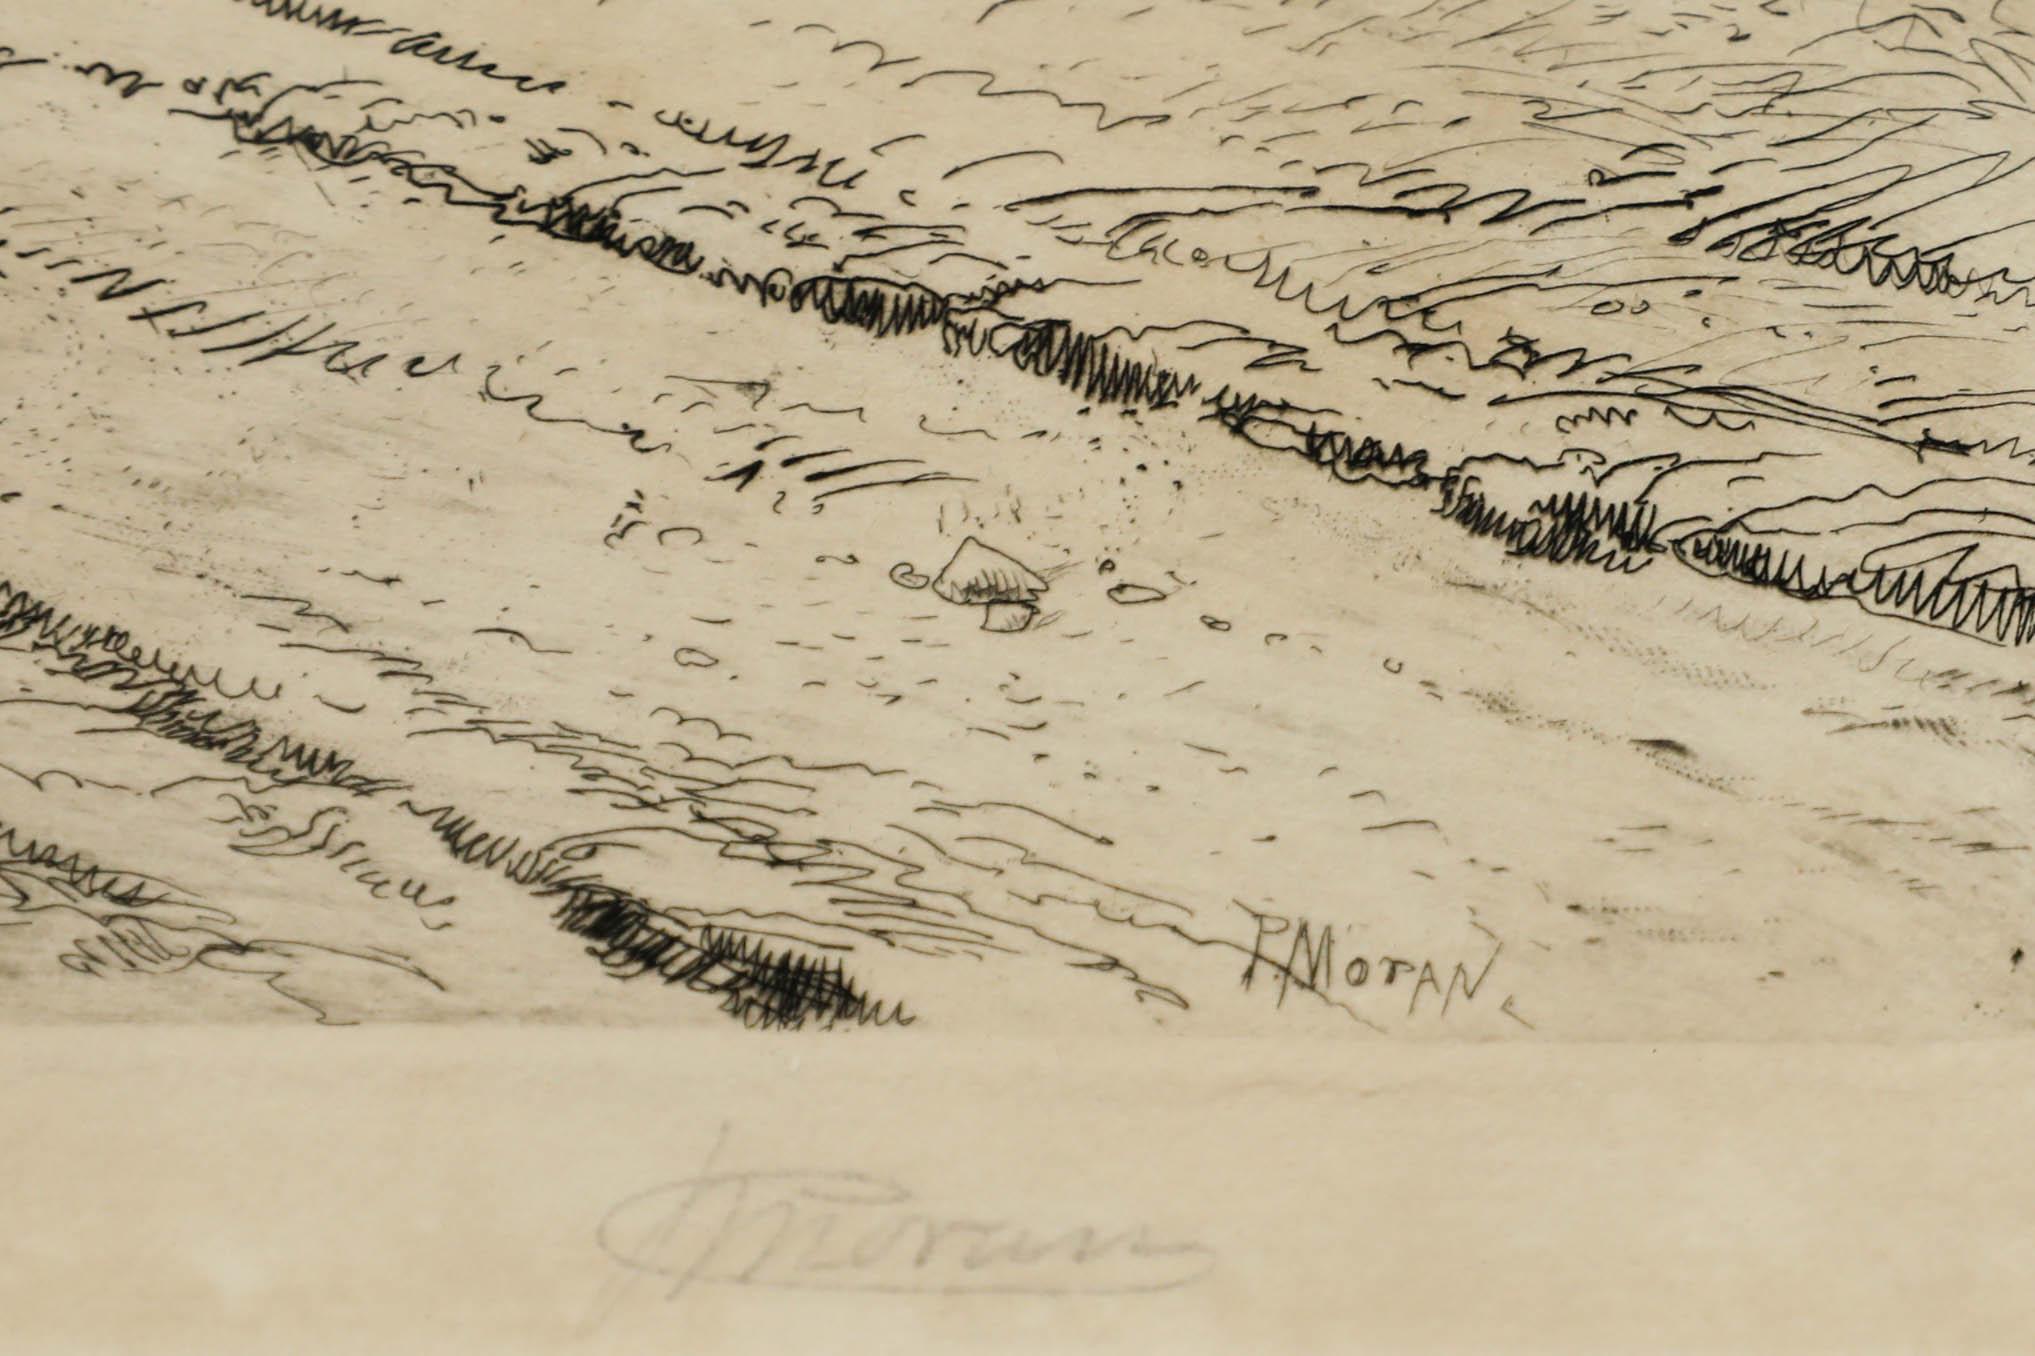 P MORAN.
P Moran